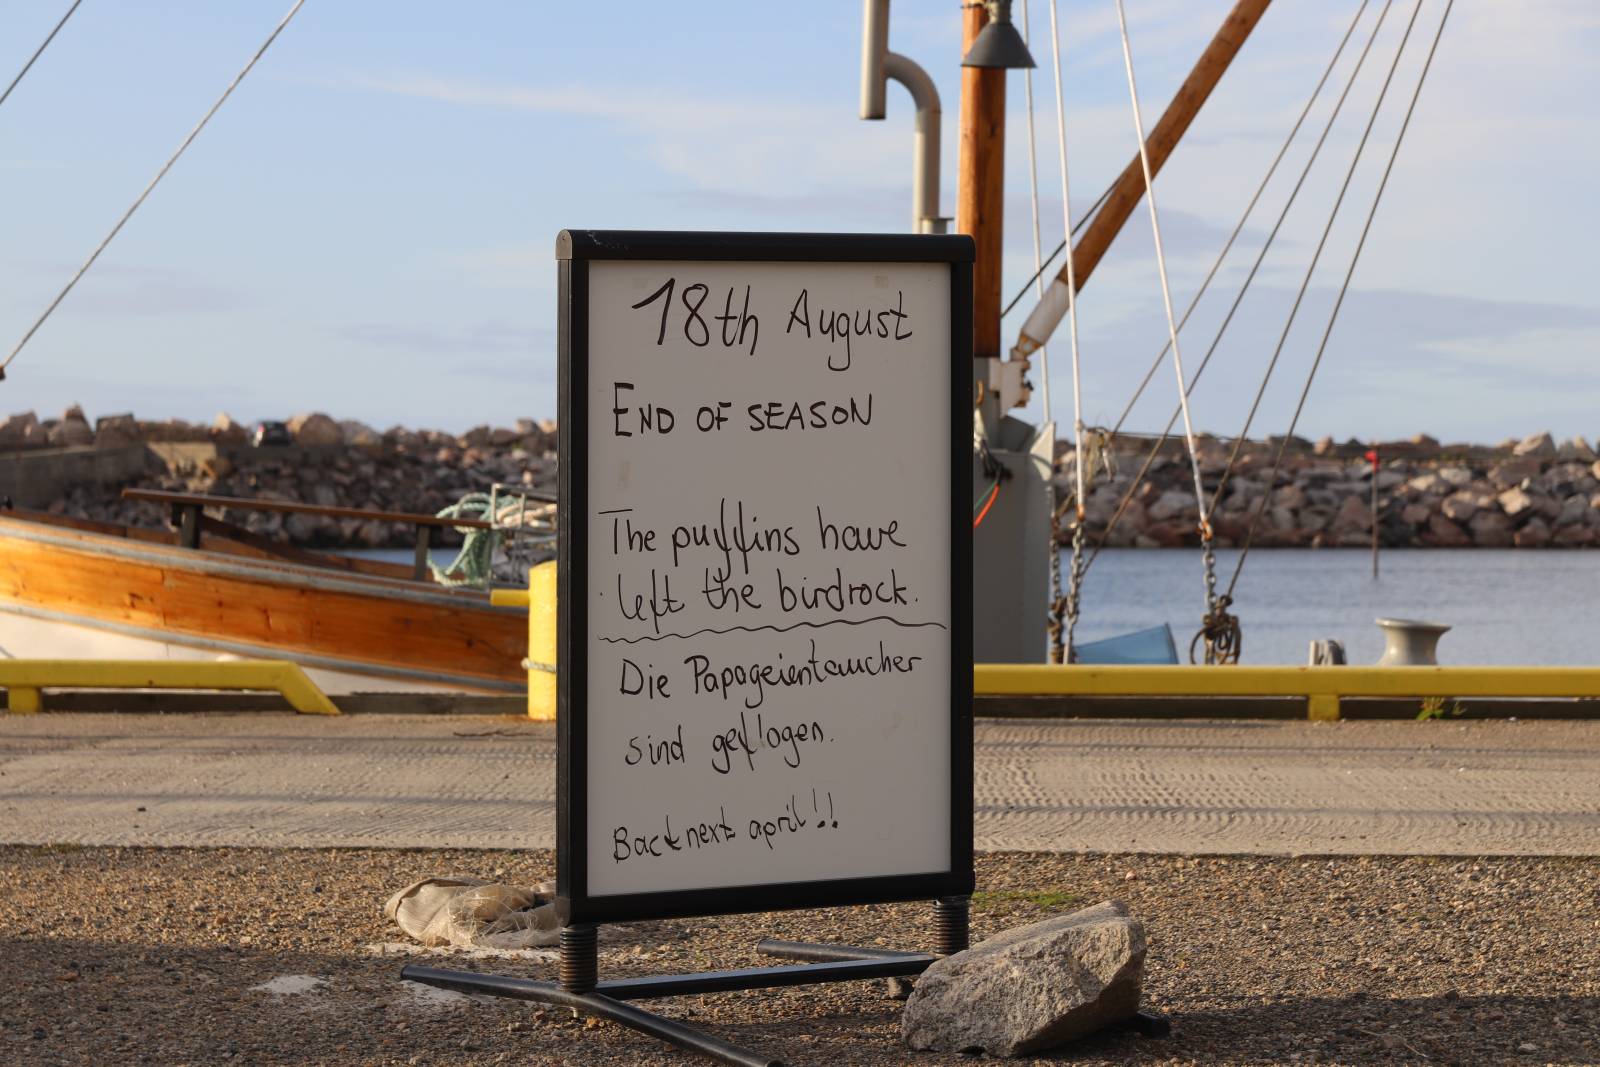 18th August
END OF SEASON
The puffins have
left the birdrock.
Die Papageientaucher
sind geflogen.
Back next april!!